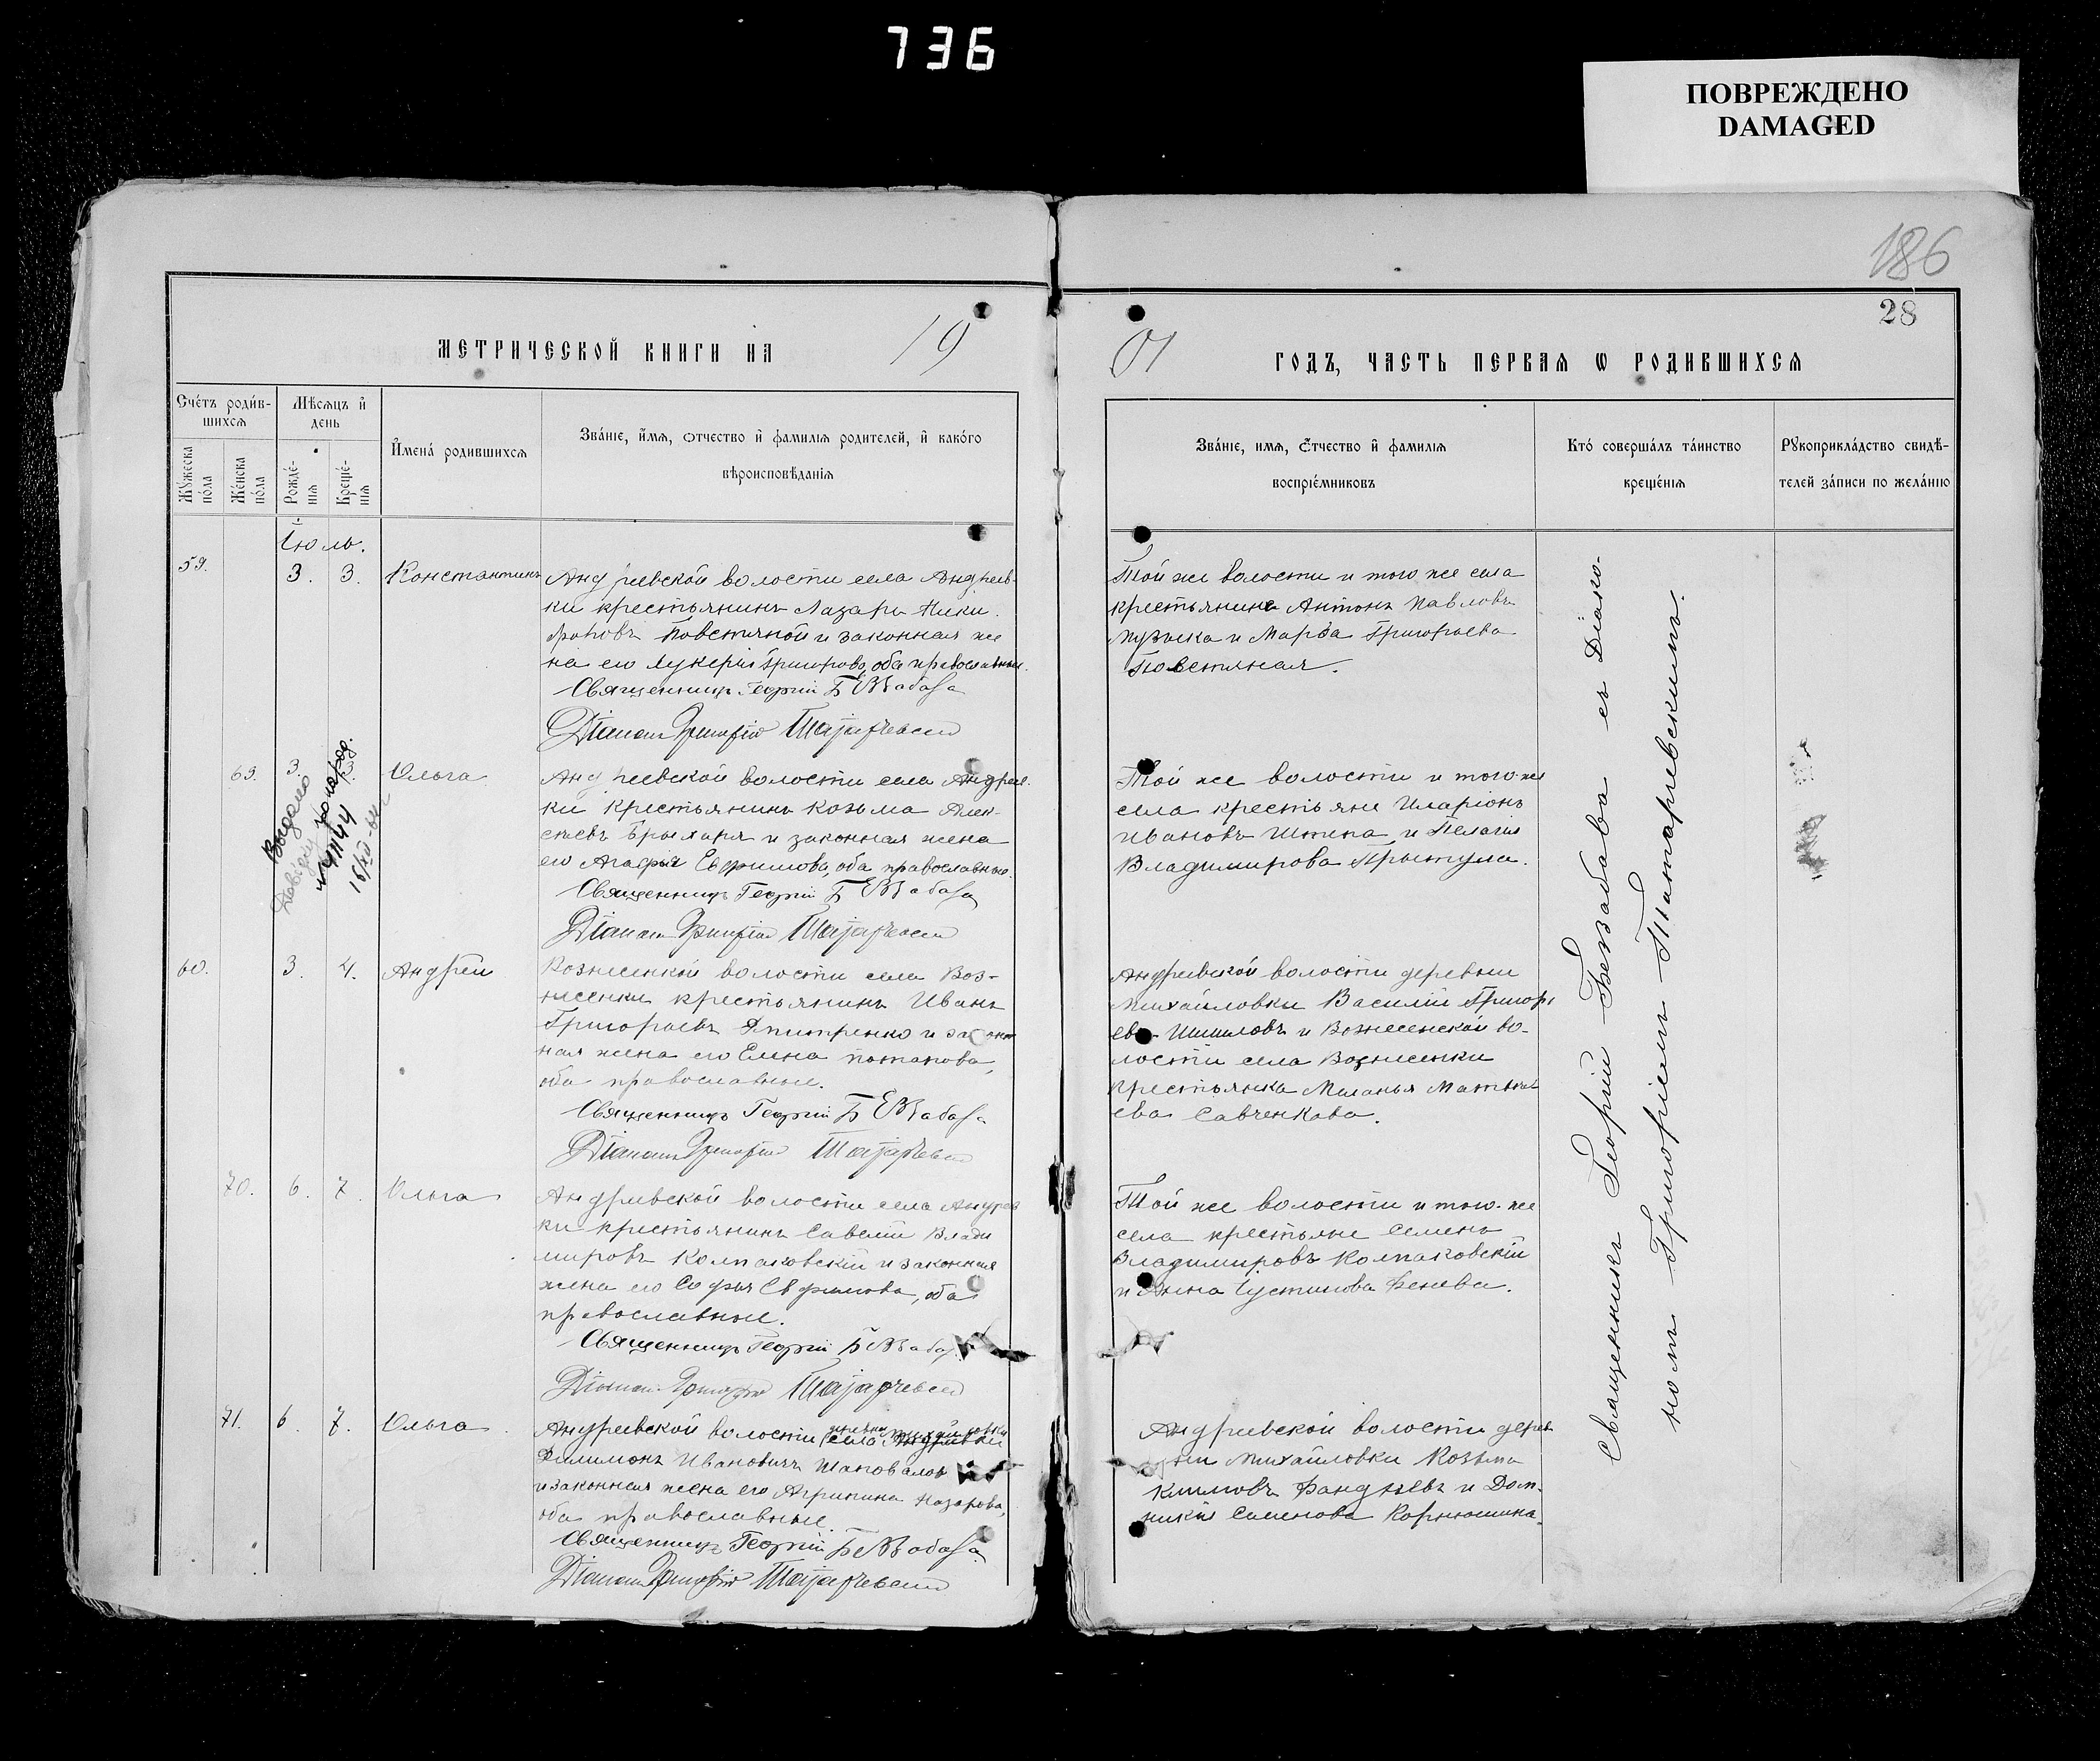 736
ПОВРЕЖДЕНО
DAMAGED
186
28
МЕТРИЧЕСКОЙ КНИГИ НА 19
01 ГОДЪ, ЧАСТЬ ПЕРВАЯ Ѡ РОДИВШИХСЯ
Счетъ родив-
шихся
Мѣсяцъ и
день
Имена родившихся
Званіе, имя, отчество и фамилія родителей, и какого
вѣроисповѣданія
Мужеска
пола
Женска
пола
Рожде-
нія
Креще-
нія
Званіе, имя, отчество и фамилія
воспріемниковъ
Кто совершалъ таинство
крещенія
Рукоприкладство свидѣ-
телей записи по желанію
Іюль.
59.
3. 3.
Константинъ
Андреевской волости села Андреев-
ки крестьянинъ Лазарь Ники-
форовъ Повстяной и законная же
на его Лукерія Григорова, оба православные.
Священникъ Георгій Беззабава
Діаконъ Григорій Татаревскій
Той же волости и того же села
крестьянине Антонъ Павловъ
и Марѳа Григорьева
Повстяная.
69.
3. 3.
Ольга
Выдано
Андреевской волости села Андреев-
ки крестьянинъ Козьма Алек-
сѣевъ и законная жена
его Агафья Евфимова, оба православные.
Священникъ Георгій Беззабава
Діаконъ Григорій Татаревскій
Той же волости и того же
села крестьяне Иларіонъ
Ивановъ Штепа и Пелагія
Владимирова Притула.
60.
3. 4.
Андрей
Вознесенкой волости села Воз-
несенки крестьянинъ Иванъ
Григорьевъ Дмитренко и закон
ная жена его Елена Потапова,
оба православные.
Священникъ Георгій Беззабава
Діаконъ Григорій Татаревскій
Андреевской волости деревни
Михайловки Василій Григорь
евъ Шишловъ и Вознесенской во-
лости села Вознесенки
крестьянка Маланья Матвѣ
ева Савченкова.
70.
6. 7.
Ольга
Андреевской волости села Андреев
ки крестьянинъ Савелій Влади
мировъ Колпаковскій и законная
жена его Софья Евфимова, оба
православные.
Священникъ Георгій Беззабава
Діаконъ Григорій Татаревскій
Той же волости и того же
села крестьяне Семенъ
Владимировъ Колпаковскій
и Анна Іустинова Бенева.
71.
6. 7.
Ольга
Андреевской волости деревни Михайловки
села Андреевки
Филимонъ Ивановичъ Шаповалов
и законная жена его Агрипина Назарова,
оба православные.
Священникъ Георгій Беззабава
Діаконъ Григорій Татаревскій
Андреевской волости дерев
ни Михайловки Козьма
Климовъ и Дом-
никія Семенова Корнюшина.
Священникъ Георгій Беззабава съ Діако-
номъ Григоріемъ Татаревскимъ.